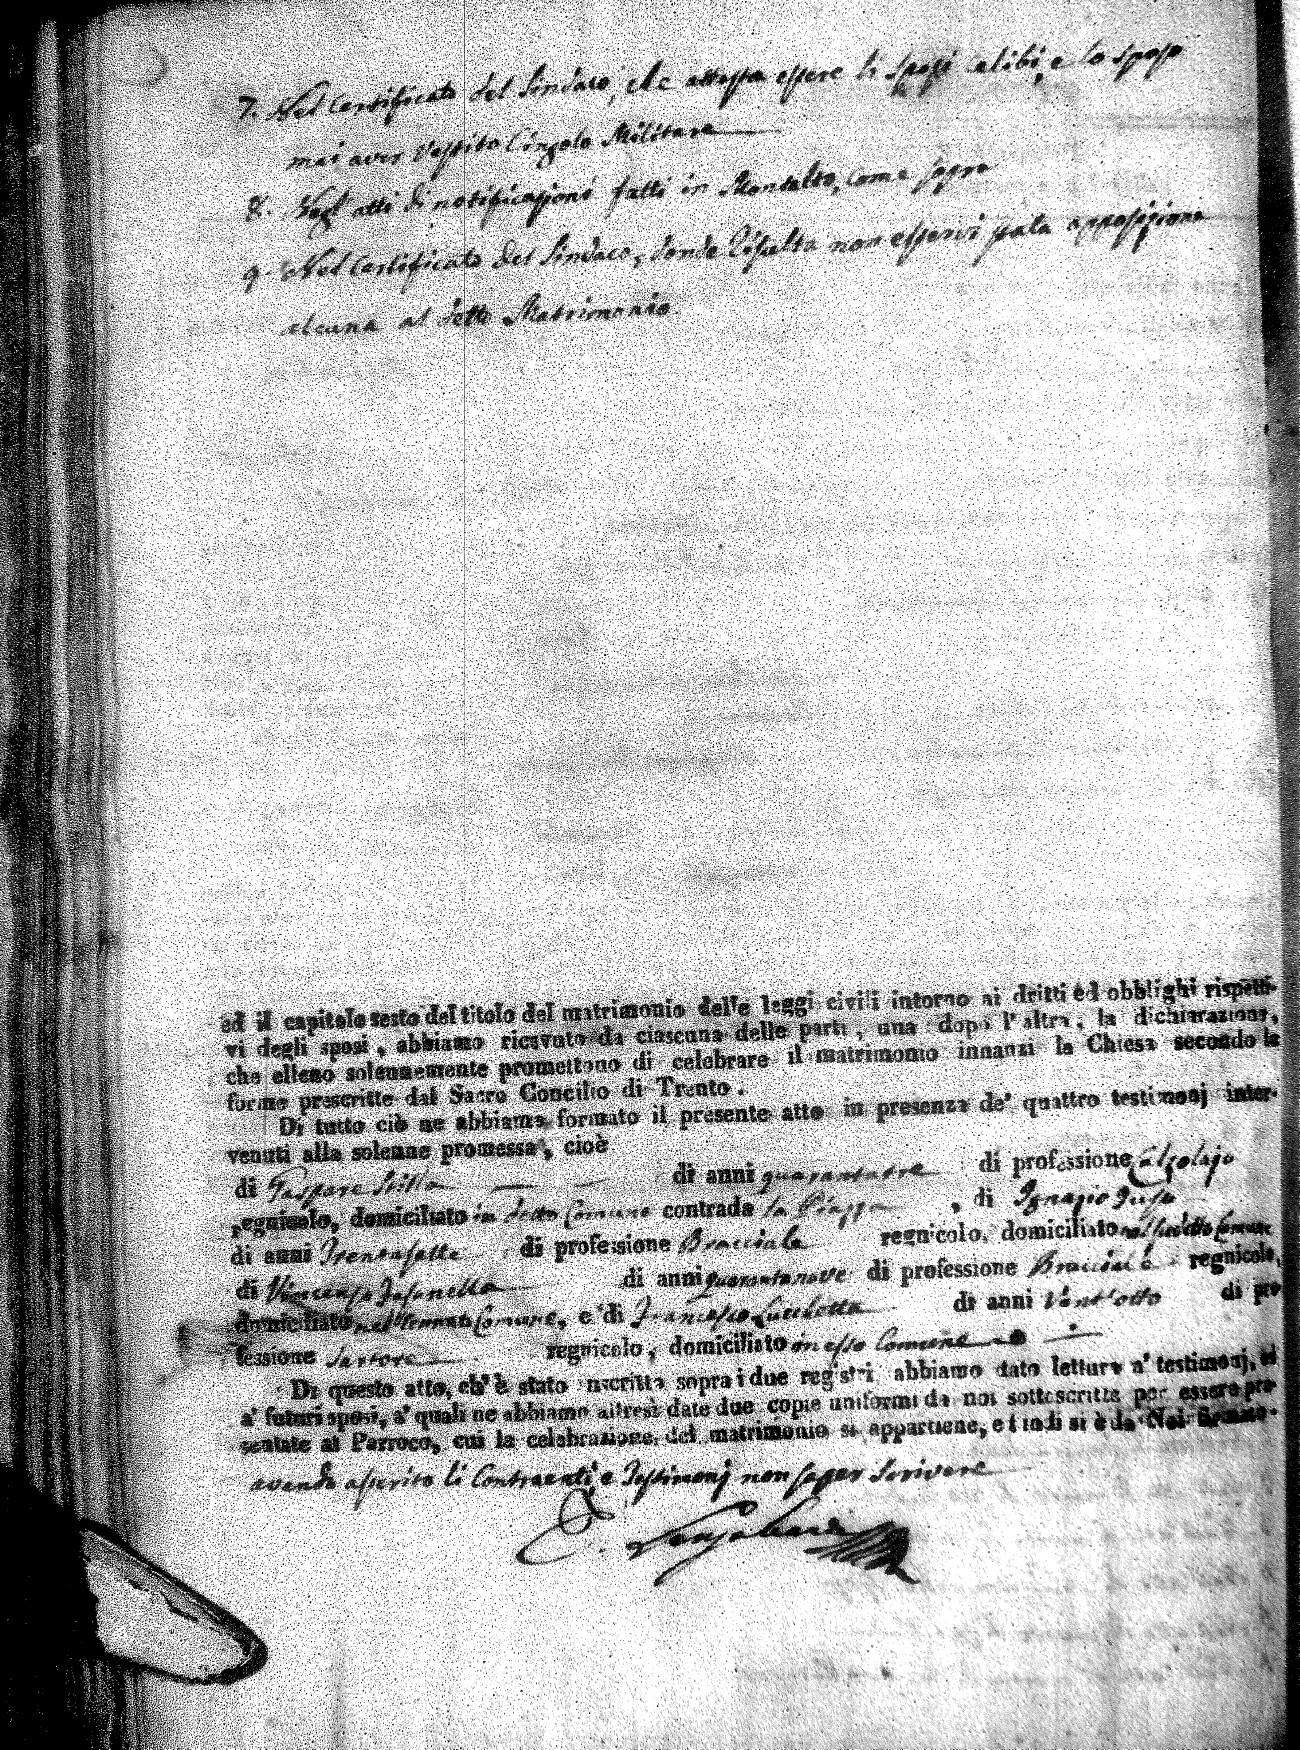 7. Nel Certificato del Sindaco, che attesta essere li sposi celibi, e lo sposo
mai aver vestito Cingolo Militare
8. Negl' atti di notificazioni fatti in Montalto, come sopra
9. Nel Certificato del Sindaco, donde Risulta non esservi stata opposizione
alcuna al detto Matrimonio.
ed il capitolo sesto del titolo del matrimonio delle leggi civili intorno ai dritti ed obblighi rispetti-
vi degli sposi, abbiamo ricevuto da ciascuna delle parti, una dopo l'altra, la dichiarazione,
che elleno solennemente promettono di celebrare il matrimonio innanzi la Chiesa secondo le
forme prescritte dal Sacro Concilio di Trento.
Di tutto ciò ne abbiamo formato il presente atto in presenza de' quattro testimonj inter-
venuti alla solenne promessa, cioè
di Gaspare Stilla di anni quarantatre di professione Calzolajo
regnicolo, domiciliato in detto Comune contrada la Piazza, di Ignazio
di anni Trentasette di professione Bracciale regnicolo, domiciliato Comune
di Vincenzo di anni quarantanove di professione Bracciale regnicolo,
domiciliato Comune, e di Francesco di anni Vent'otto di pro
fessione Sartore regnicolo, domiciliato in esso Comune
Di questo atto, ch'è stato inscritto sopra i due registri, abbiamo dato lettura a' testimonj, ed
a' futuri sposi, a' quali ne abbiamo altresì date due copie uniformi da noi sottoscritte per essere pre-
sentate al Parroco, cui la celebrazione del matrimonio si appartiene, e indi si è da Noi firmato.
avendo asserito li Contraenti, e Testimonj non saper scrivere